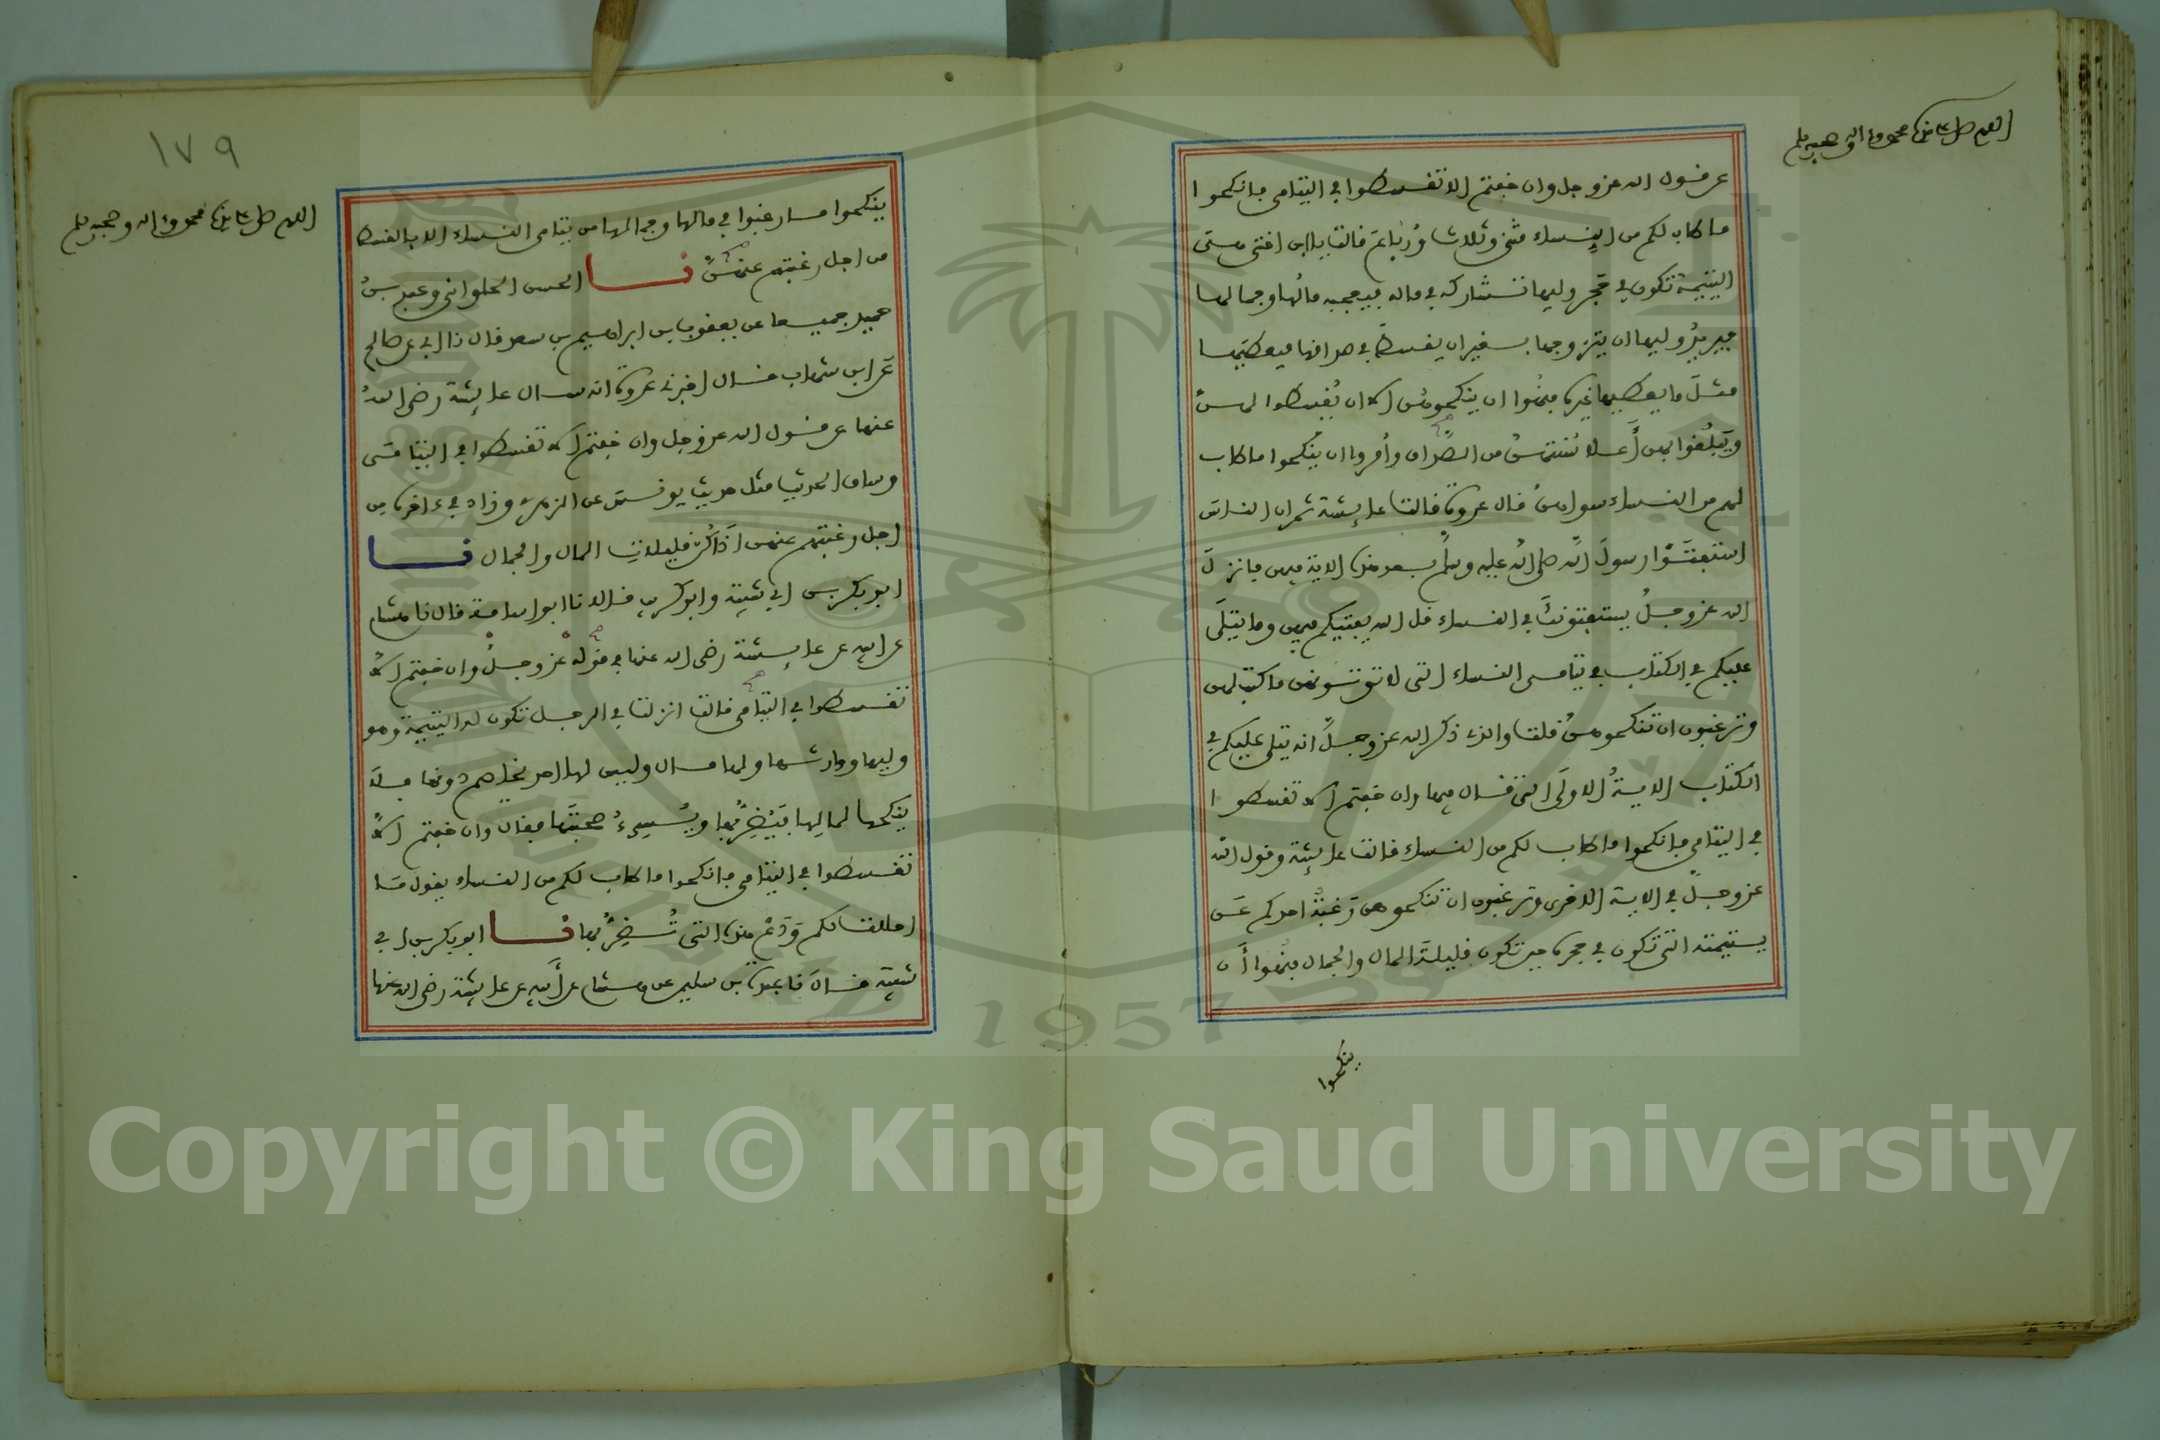 اللهم صل على سيدنا محمد وءاله وصحبه وسلم
عن قول الله عز وجل وان خفتم الا تقسطوا في اليتامى فانكحوا
ما طاب لكم من النساء مثنى وثلاث ورباع قالت يا ابن اختي هي
اليتيمة تكون في حجر وليها تشاركه في ماله فيعجبه مالها وجمالها
فيريد وليها ان يتزوجها بغير ان يقسط في صداقها فيعطيها
مثل ما يعطيها غيره فنهوا ان ينكحوهن الا ان يقسطوا لهن
ويبلغوا بهن أعلا سنتهن من الصداق وأمروا ان ينكحوا ما طاب
لهم من النساء سواهن قال عروة قالت عايشة ثم ان الناس
استفتوا رسول الله صلى الله عليه وسلم بعد هذه الاية فيهن فانزل
الله عز وجل يستفتونك في النساء قل الله يفتيكم فيهن وما يتلى
عليكم في الكتاب في يتامى النساء التي لا تؤتونهن ما كتب لهن
وترغبون ان تنكحوهن قلت والذي ذكر الله عز وجل انه يتلى عليكم في
الكتاب الاية الاولى التي قال فيها وان خفتم الا تقسطوا
في اليتامى فانكحوا ما طاب لكم من النساء قالت عايشة وقول الله
عز وجل في الاية الاخرى وترغبون ان تنكحوهن رغبة احدكم عن
يتيمته التي تكون في حجره حين تكون قليلة المال والجمال فنهوا أن
ينكحوا
١٧٩
اللهم صل على سيدنا محمد وءاله وصحبه وسلم
ينكحوا ما رغبوا في مالها وجمالها من يتامى النساء الا بالقسط
من اجل رغبتهم عنهن نا الحسن الحلواني وعبد بن
حميد جميعا عن يعقوب بن ابراهيم بن سعد قال نا ابي عن صالح
عن ابن شهاب قال اخبرني عروة انه سال عايشة رضي الله
عنها عن قول الله عز وجل وان خفتم الا تقسطوا في اليتامى
وساق الحديث مثل حديث يونس عن الزهري وزاد في ءاخره من
اجل رغبتهم عنهن اذا كن قليلات المال والجمال نا
ابو بكر بن ابي شيبة وابو كريب قالا نا ابو اسامة قال نا هشام
عن ابيه عن عايشة رضي الله عنها في قوله عز وجل وان خفتم الا
تقسطوا في اليتامى قالت انزلت في الرجل تكون له اليتيمة وهو
وليها ووارثها ولها مال وليس لها احد يخاصم دونها فلا
ينكحها لمالها فيضر بها ويسيء صحبتها فقال وان خفتم الا
تقسطوا في اليتامى فانكحوا ما طاب لكم من النساء يقول ما
احللت لكم ودع هذه التي تضر بها نا ابو بكر بن ابي
شيبة قال نا عبدة بن سليمن عن هشام عن أبيه عن عايشة رضي الله عنها
Copyright © King Saud University
1957